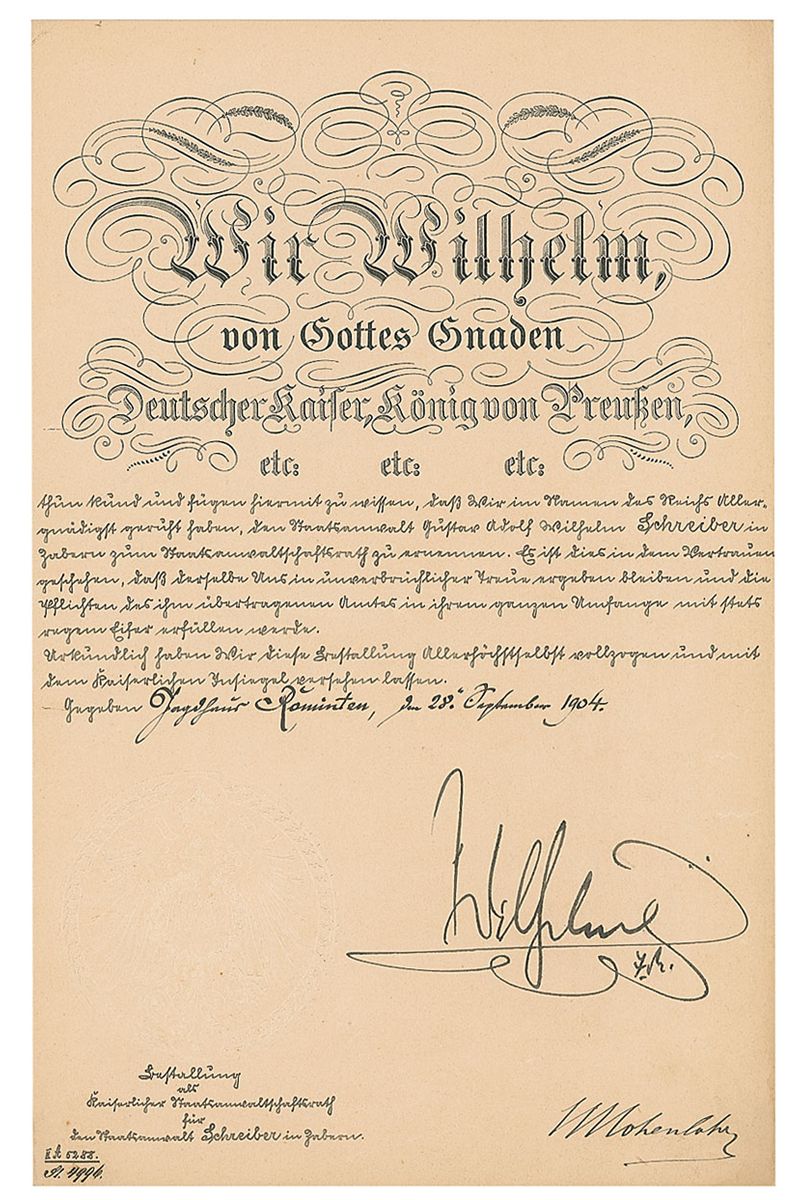 Wir Wilhelm,
von Gottes Gnaden
Deutscher Kaiser, König von Preußen,
etc: etc: etc:
thun kund und fügen hiermit zu wissen, daß Wir im Namen des Reichs Aller-
gnädigst geruht haben, den Staatsanwalt Gustav Adolf Wilhelm Schreiber in
Zabern zum Staatsanwaltschaftsrath zu ernennen. Es ist dies in dem Vertrauen
geschehen, daß derselbe Uns in unverbrüchlicher Treue ergeben bleiben und die
Pflichten des ihm übertragenen Amtes in ihrem ganzen Umfange mit stets
regem Eifer erfüllen werde.
Urkundlich haben Wir diese Bestallung Allerhöchstselbst vollzogen und mit
dem Kaiserlichen Insiegel versehen lassen.
Gegeben Jagdhaus Rominten, den 28. September 1904.
Wilhelm
I.R.
Bestallung
als
Kaiserlicher Staatsanwaltschaftsrath
für
den Staatsanwalt Schreiber in Zabern.
II A 5288.
Hohenlohe